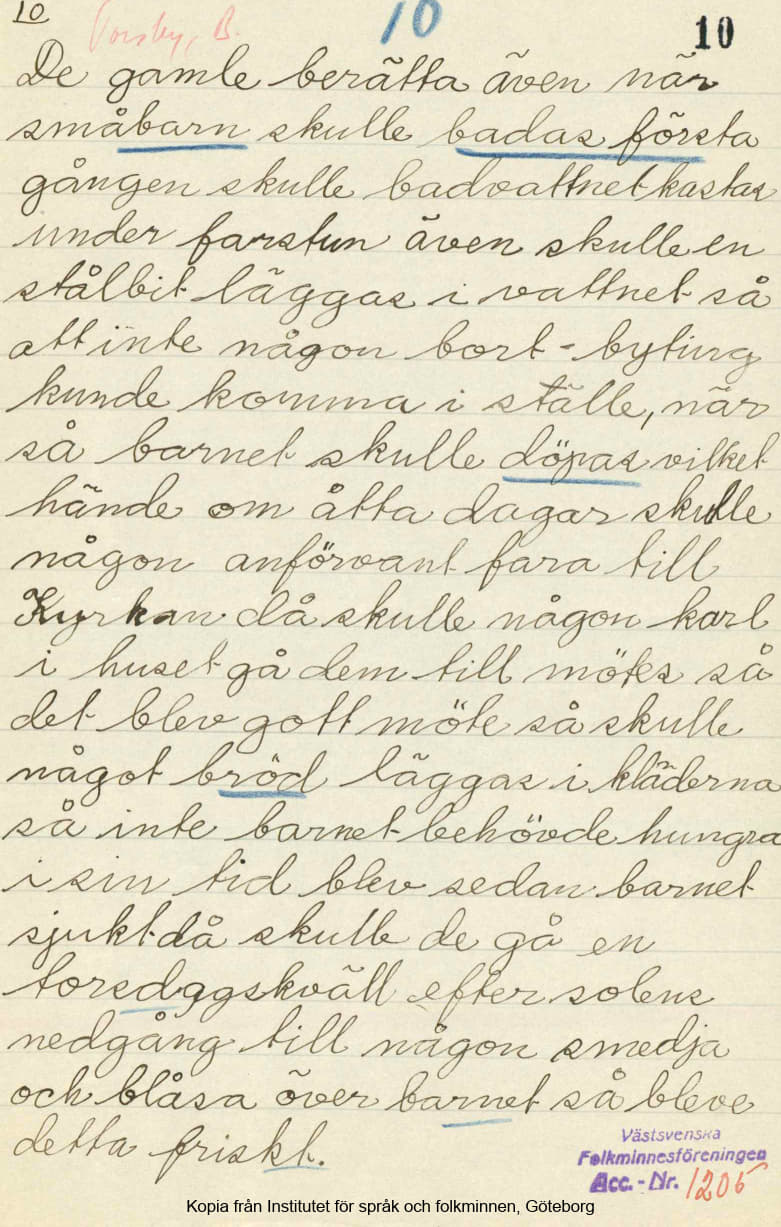 10
Torsby, B.
10
10
De gamle berätta även när
småbarn skulle badas första
gången skulle badvattnet kastas
under farstun även skulle en
stålbit läggas i vattnet så
att inte någon bort-byting
kunde komma i ställe, när
så barnet skulle döpas vilket
hände om åtta dagar skulle
någon anförvant fara till
Kyrkan då skulle någon karl
i huset gå dem till mötes så
det blev gott möte så skulle
något bröd läggas i kläderna
så inte barnet behövde hungra
i sin tid blev sedan barnet
sjukt då skulle de gå en
torsdagskväll efter solens
nedgång till någon smedja
och blåsa över barnet så bleve
detta friskt.
Västsvenska
Folkminnesföreningen
Acc.-Nr. 1205
Kopia från Institutet för språk och folkminnen, Göteborg